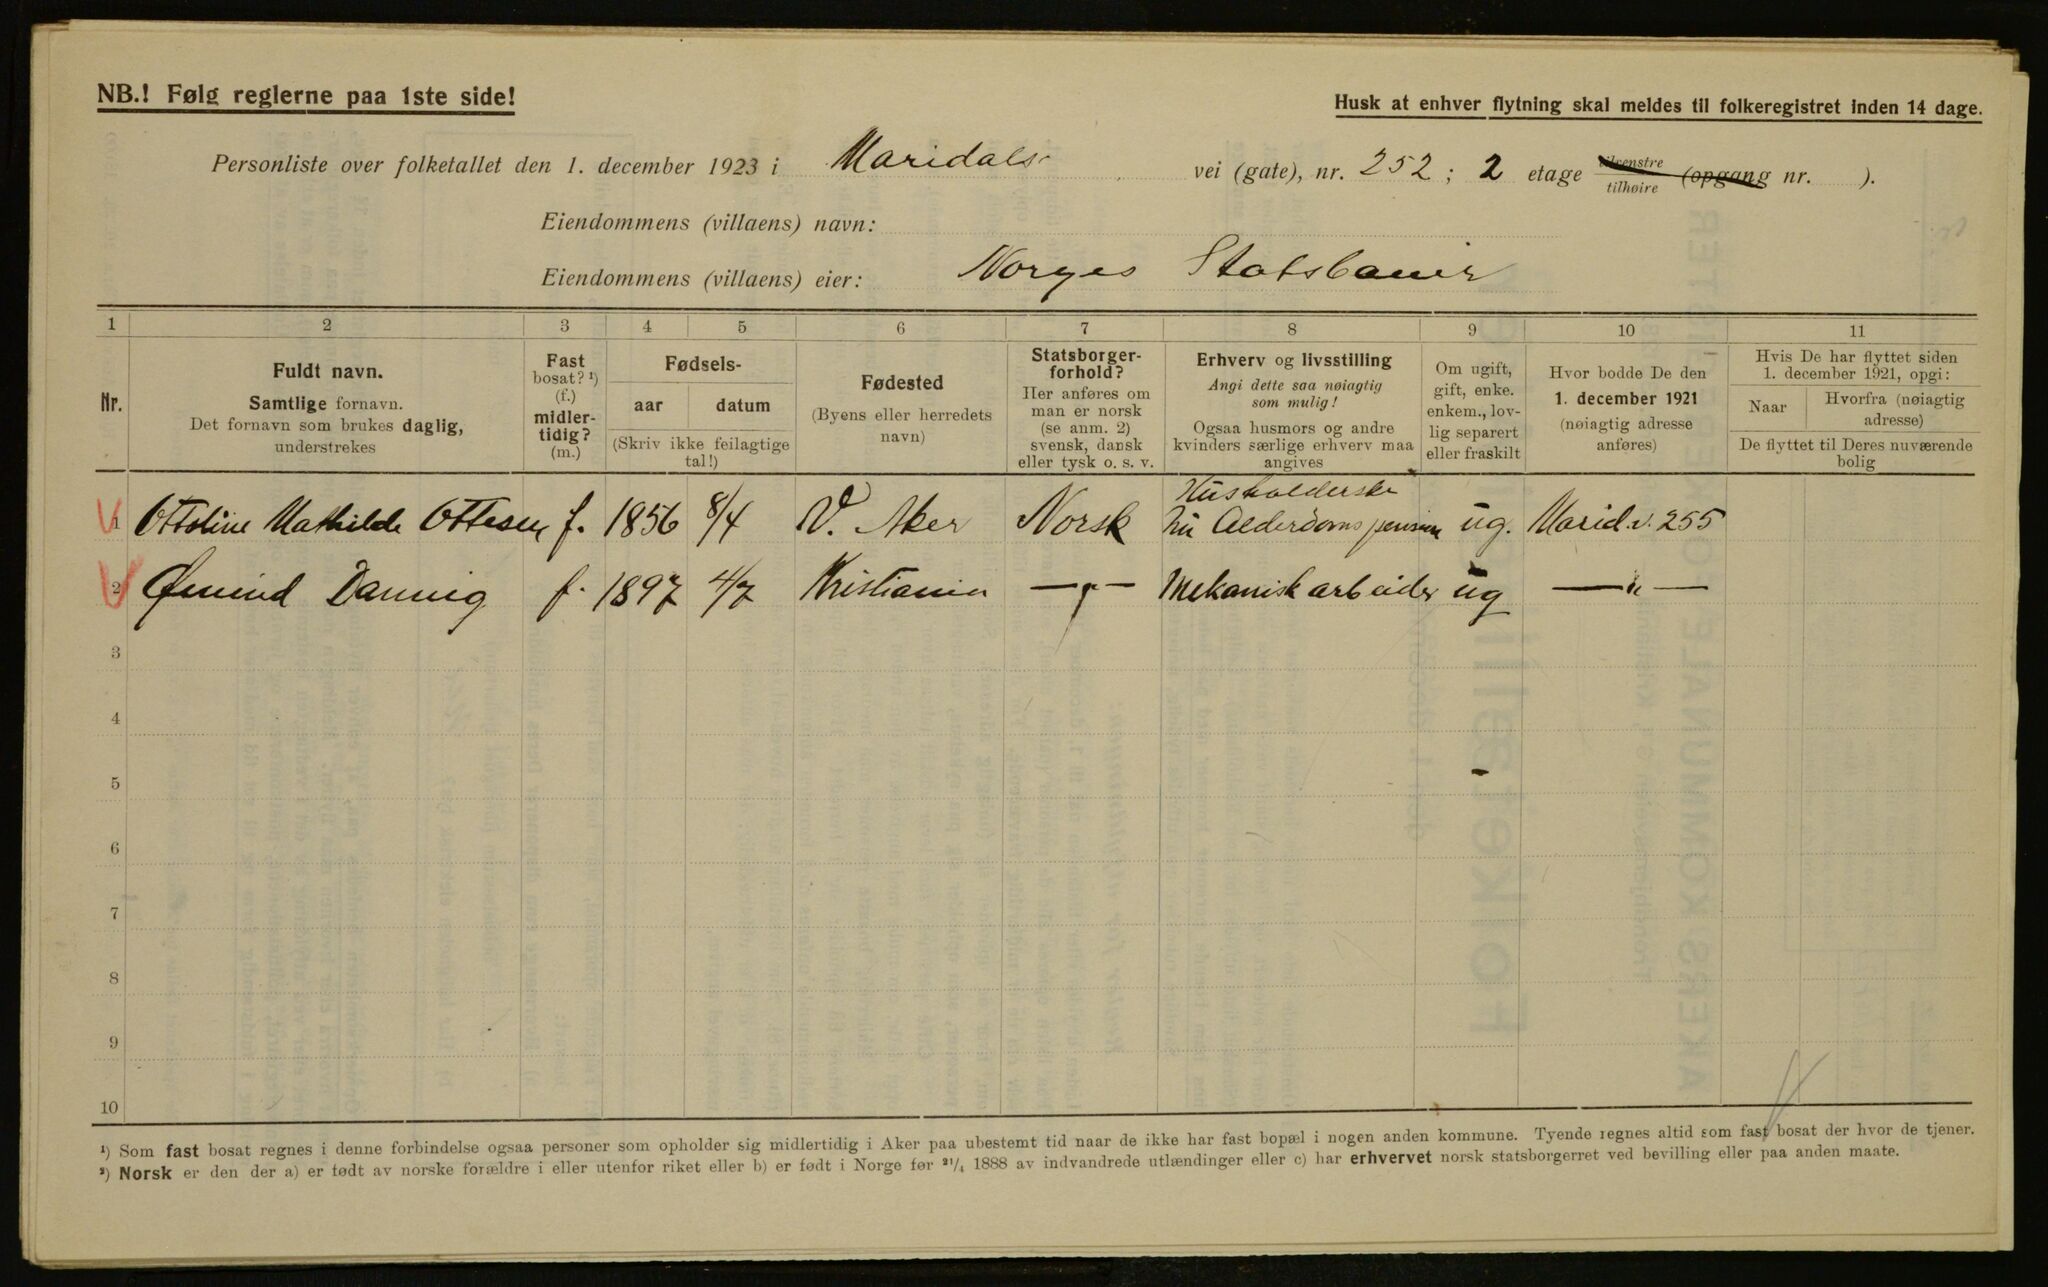 NB.! Følg reglerne paa 1ste side!
Husk at enhver flytning skal meldes til folkeregistret inden 14 dage.
Personliste over folketallet den 1. december 1923 i Maridals vei (gate), nr. 252; 2 etage tilvenstre tilhøire (opgang nr. ).
Eiendommens (villaens) navn:
Eiendommens (villaens) eier: Norges Statsbaner
1 2 3 4 5 6 7 8 9 10 11
Nr.
Fuldt navn.
Samtlige fornavn.
Det fornavn som brukes daglig,
understrekes
Fast
bosat? ¹)
(f.)
midler-
tidig?
(m.)
Fødsels-
aar datum
(Skriv ikke feilagtige
tal!)
Fødested
(Byens eller herredets
navn)
Statsborger-
forhold?
Her anføres om
man er norsk
(se anm. 2)
svensk, dansk
eller tysk o. s. v.
Erhverv og livsstilling
Angi dette saa nøiagtig
som mulig!
Ogsaa husmors og andre
kvinders særlige erhverv maa
angives
Om ugift,
gift, enke.
enkem., lov-
lig separert
eller fraskilt
Hvor bodde De den
1. december 1921
(nøiagtig adresse
anføres)
Hvis De har flyttet siden
1. december 1921, opgi:
Naar
Hvorfra (nøiagtig
adresse)
De flyttet til Deres nuværende
bolig
Husholderske
1 Ottoline Mathilde Ottesen f. 1856 8/4 V. Aker Norsk nu Alderdoms pension ug. Marid.v. 255
2 Øivind Dannig f. 1897 4/7 Kristiania —"— Mekanisk arbeider ug —"—
3
4
5
6
7
8
9
10
¹) Som fast bosat regnes i denne forbindelse ogsaa personer som opholder sig midlertidig i Aker paa ubestemt tid naar de ikke har fast bopæl i nogen anden kommune. Tyende regnes altid som fast bosat der hvor de tjener.
²) Norsk er den der a) er født av norske forældre i eller utenfor riket eller b) er født i Norge før ²¹/₄ 1888 av indvandrede utlændinger eller c) har erhvervet norsk statsborgerret ved bevilling eller paa anden maate.